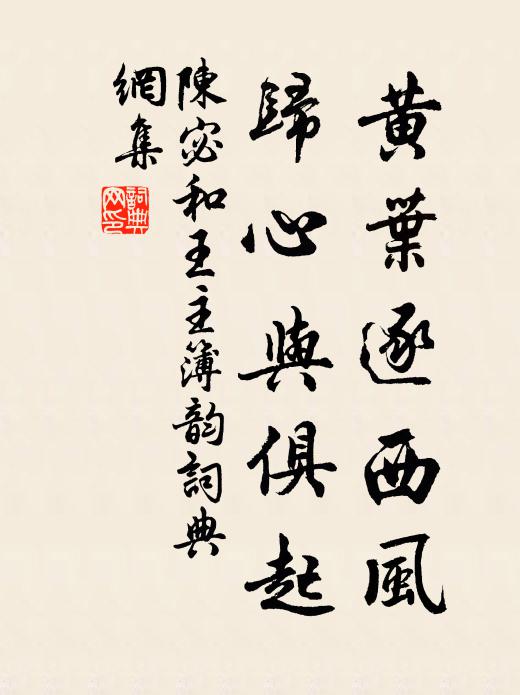 黄葉逐西風
歸心與俱起
陳宓和王主簿韵詞典
網集
詞典
网印